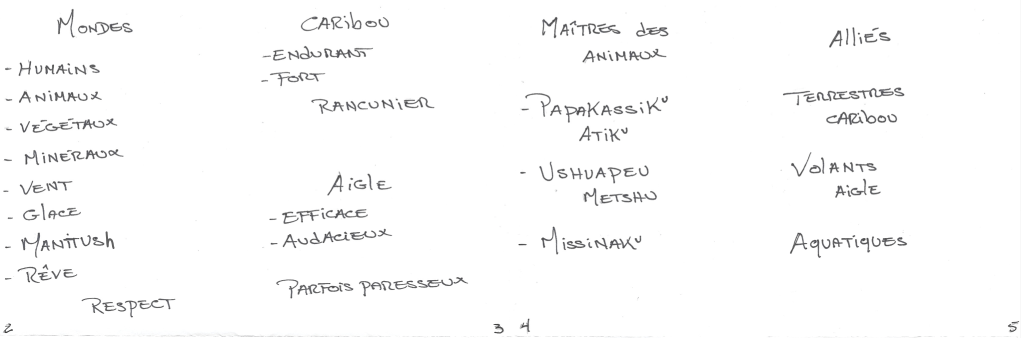 Mondes
- Humains
- Animaux
- Végétaux
- Minéraux
- Vent
- Glace
- Manitush
- Rêve
Respect
2
Caribou
- Endurant
- Fort
Rancunier
Aigle
- Efficace
- Audacieux
Parfois paresseux
3
Maîtres des
animaux
- Papakassikᵘ
Atikᵘ
- Ushuapeu
Metshu
- Missinakᵘ
4
Alliés
Terrestres
Caribou
Volants
Aigle
Aquatiques
5